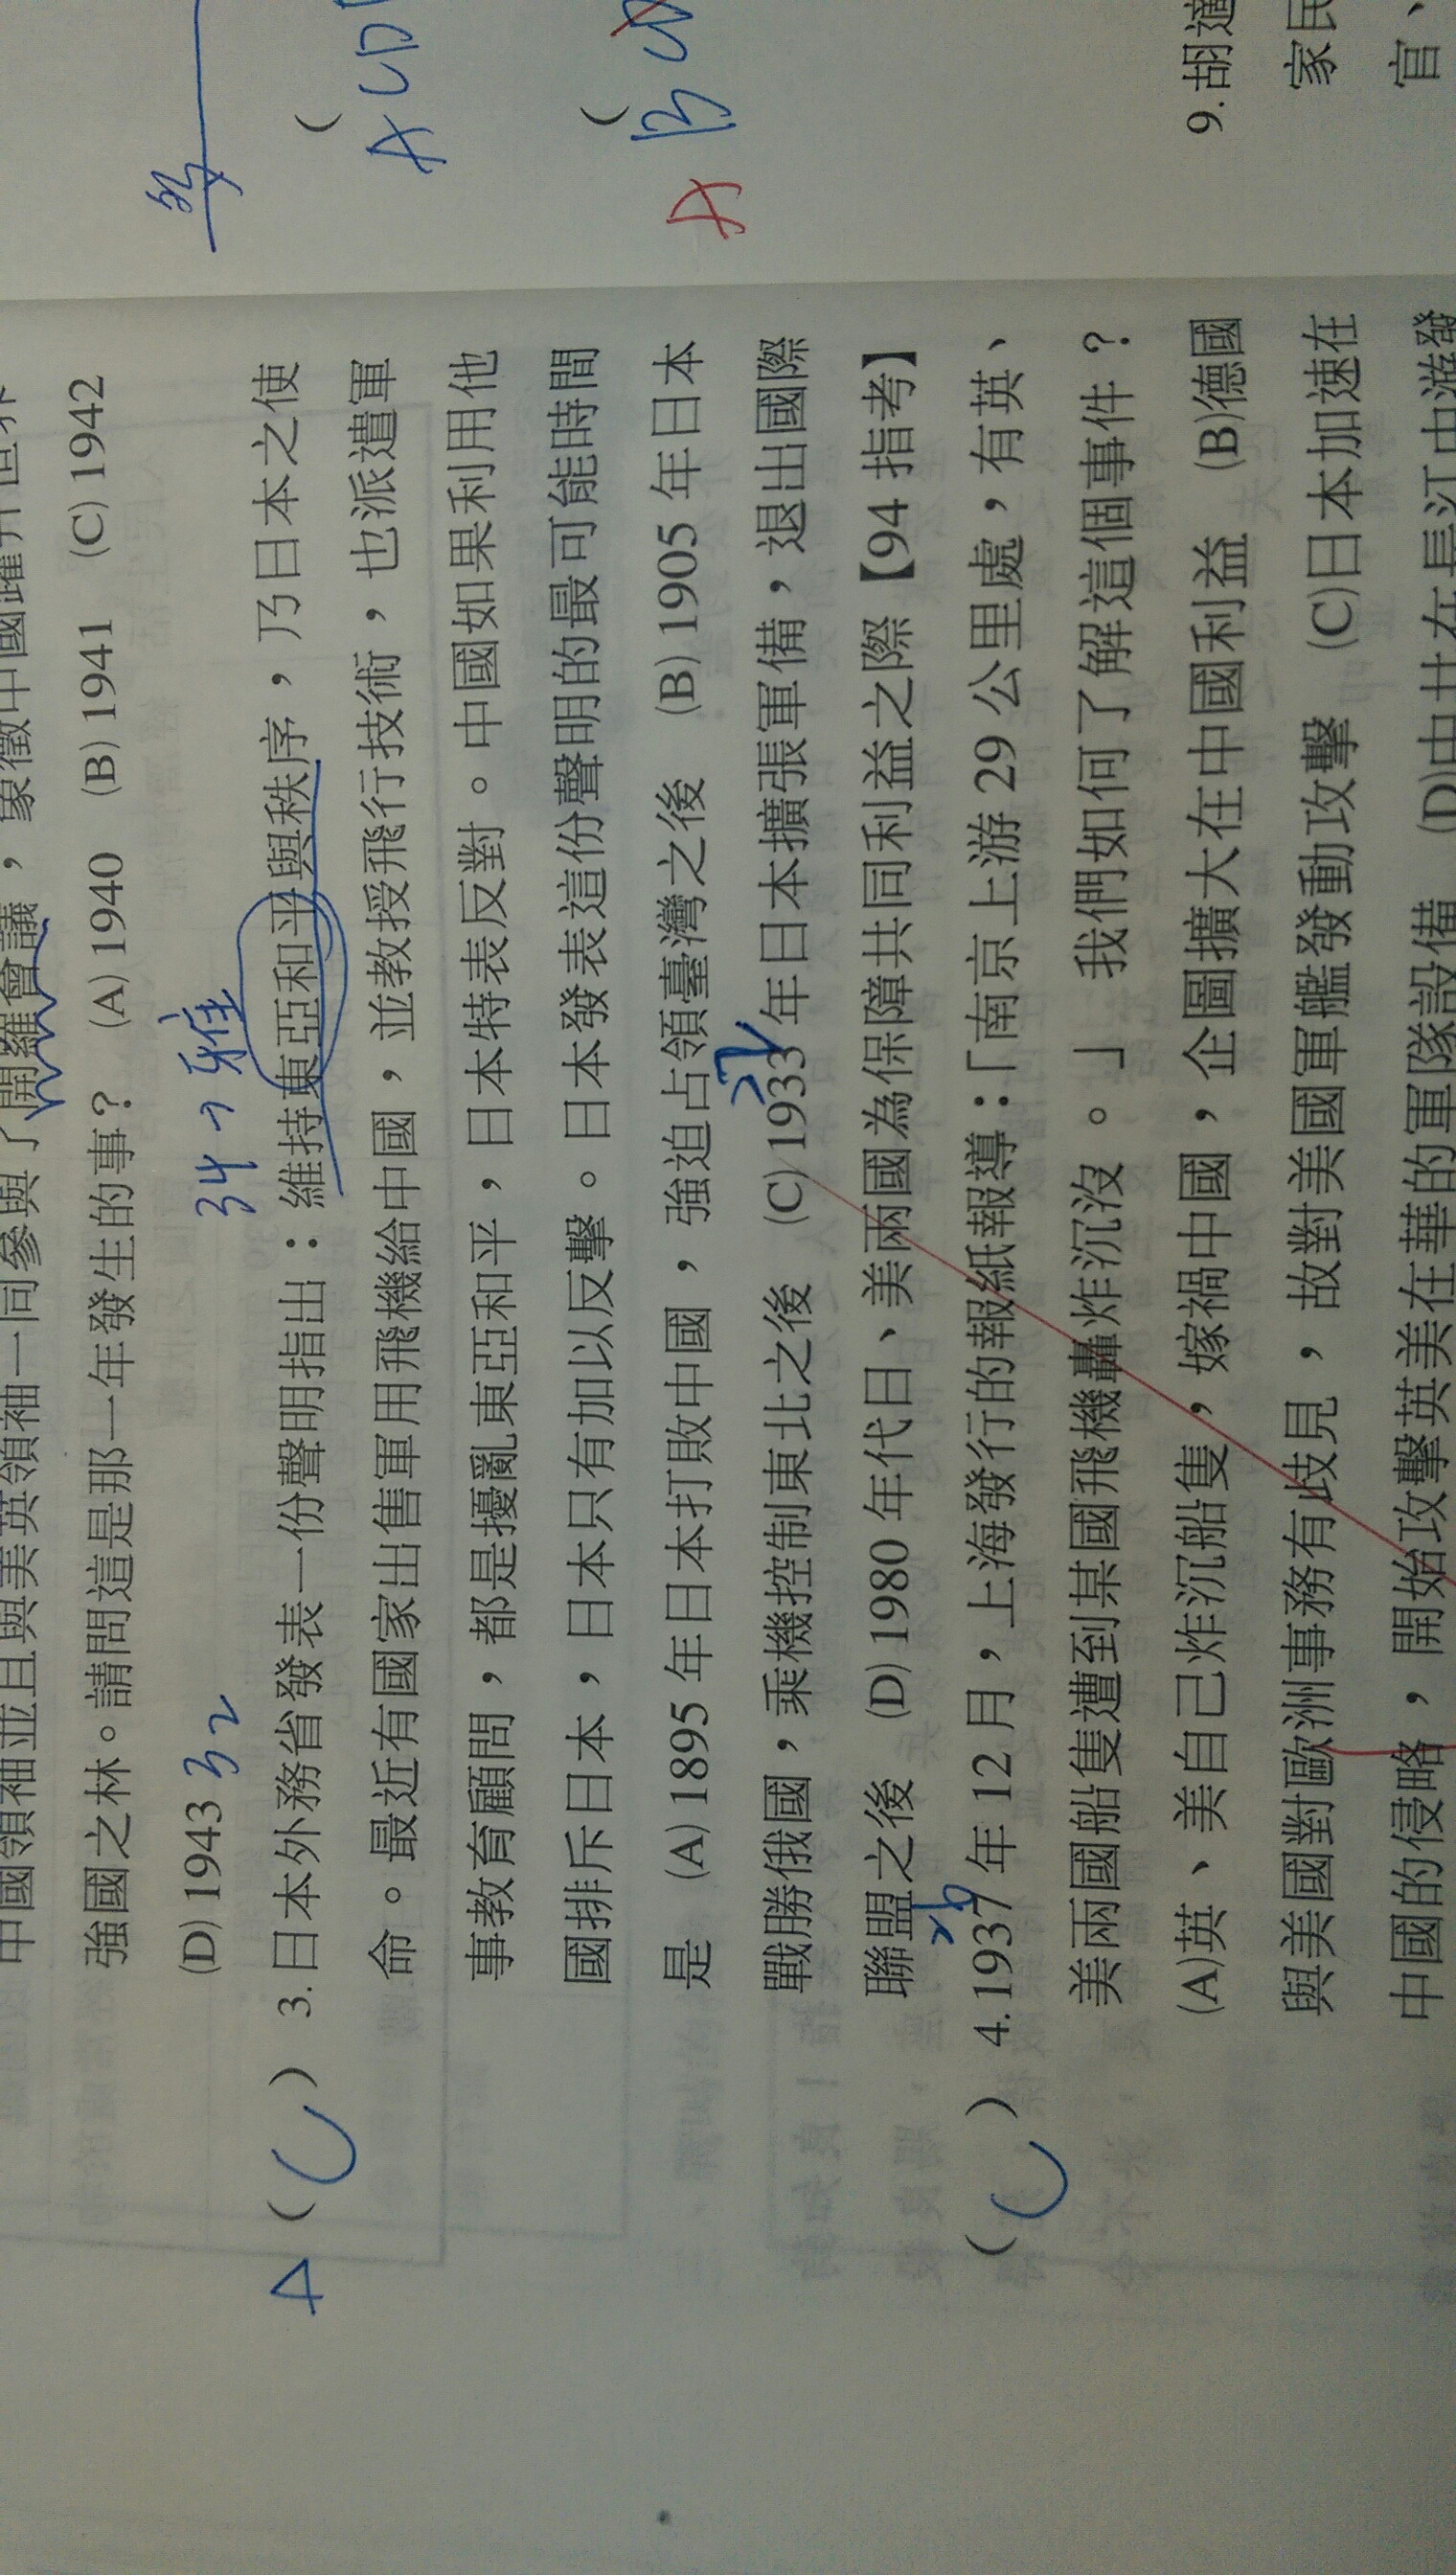 強國之林。請問這是那一年發生的事？ (A) 1940 (B) 1941 (C) 1942
(D) 1943 32
34
3.日本外務省發表一份聲明指出：維持東亞和平與秩序，乃日本之使
命。最近有國家出售軍用飛機給中國，並教授飛行技術，也派遣軍
事教育顧問，都是擾亂東亞和平，日本特表反對。中國如果利用他
國排斥日本，日本只有加以反擊。日本發表這份聲明的最可能時間
是 (A) 1895 年日本打敗中國，強迫占領臺灣之後 (B) 1905 年日本
戰勝俄國，乘機控制東北之後 (C) 1933 年日本擴張軍備，退出國際
聯盟之後 (D) 1980 年代日、美兩國為保障共同利益之際【94 指考】
( C ) 4.1937 年 12 月，上海發行的報紙報導：「南京上游 29 公里處，有英、
美兩國船隻遭到某國飛機轟炸沉沒。」 我們如何了解這個事件？
(A)英、美自己炸沉船隻，嫁禍中國，企圖擴大在中國利益 (B)德國
與美國對歐洲事務有歧見，故對美國軍艦發動攻擊 (C)日本加速在
中國的侵略，開始攻擊英美在華的軍隊設備 (D)中共在長江中游發
A C D
A B C D
9.胡適
家民
官、